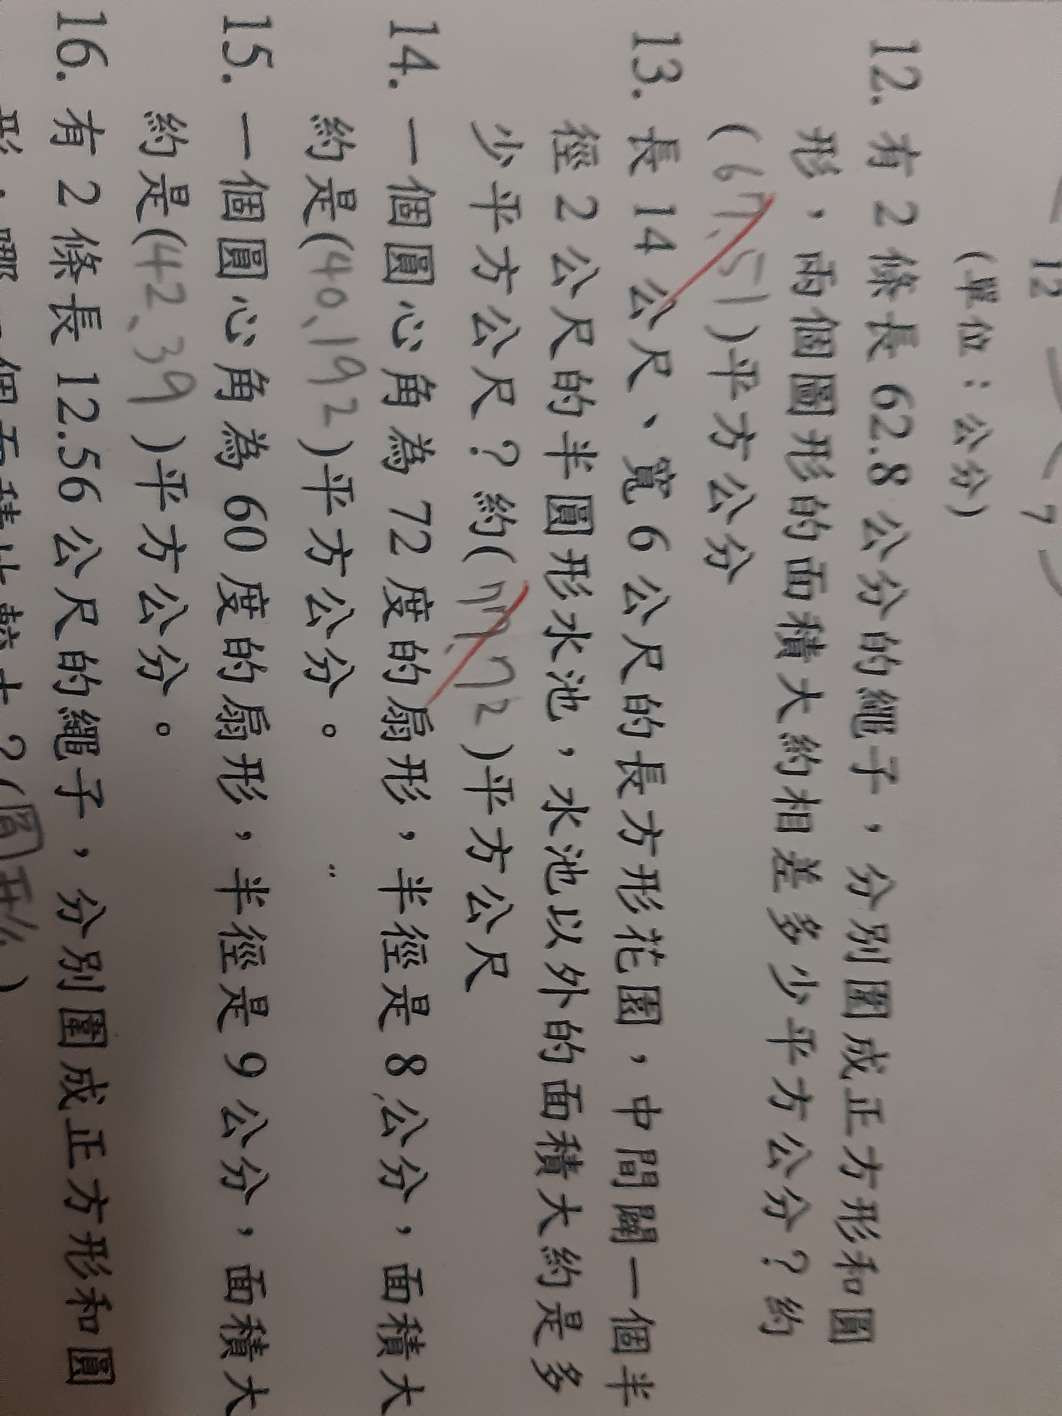 12 7
(單位：公分)
12. 有 2 條長 62.8 公分的繩子，分別圍成正方形和圓
形，兩個圖形的面積大約相差多少平方公分？約
(67.51)平方公分
13. 長 14 公尺、寬 6 公尺的長方形花園，中間闢一個半
徑 2 公尺的半圓形水池，水池以外的面積大約是多
少平方公尺？約(77.72)平方公尺
14. 一個圓心角為 72 度的扇形，半徑是 8 公分，面積大
約是(40.192)平方公分。
15. 一個圓心角為 60 度的扇形，半徑是 9 公分，面積大
約是(42.39)平方公分。
16. 有 2 條長 12.56 公尺的繩子，分別圍成正方形和圓
形，哪一個面積比較大？(圓形)